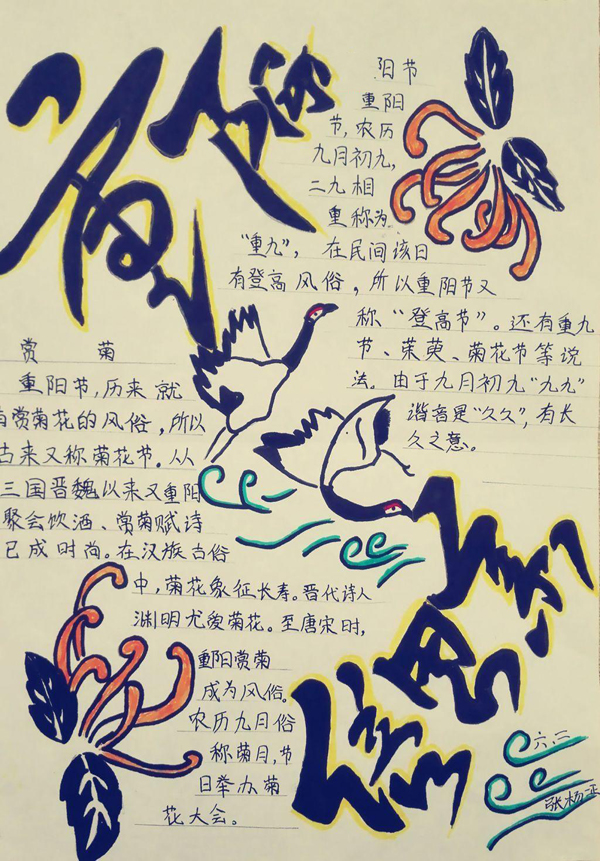 重阳
阳节
重阳
节,农历
九月初九,
二九相
重称为
“重九”, 在民间该日
有登高风俗,所以重阳节又
称“登高节”。还有重九
节、茱萸、菊花节等说
法。由于九月初九“九九”
谐音是“久久”,有长
久之意。
赏 菊
重阳节,历来 就
有赏菊花的风俗,所以
古来又称菊花节。从
三国晋魏以来又重阳
聚会饮酒、赏菊赋诗
已成时尚。在汉族古俗
中,菊花象征长寿。晋代诗人
渊明尤爱菊花。至唐宋时,
重阳赏菊
成为风俗。
农历九月俗
称菊月,节
日举办菊
花大会。
倍思亲
六.二
张杨